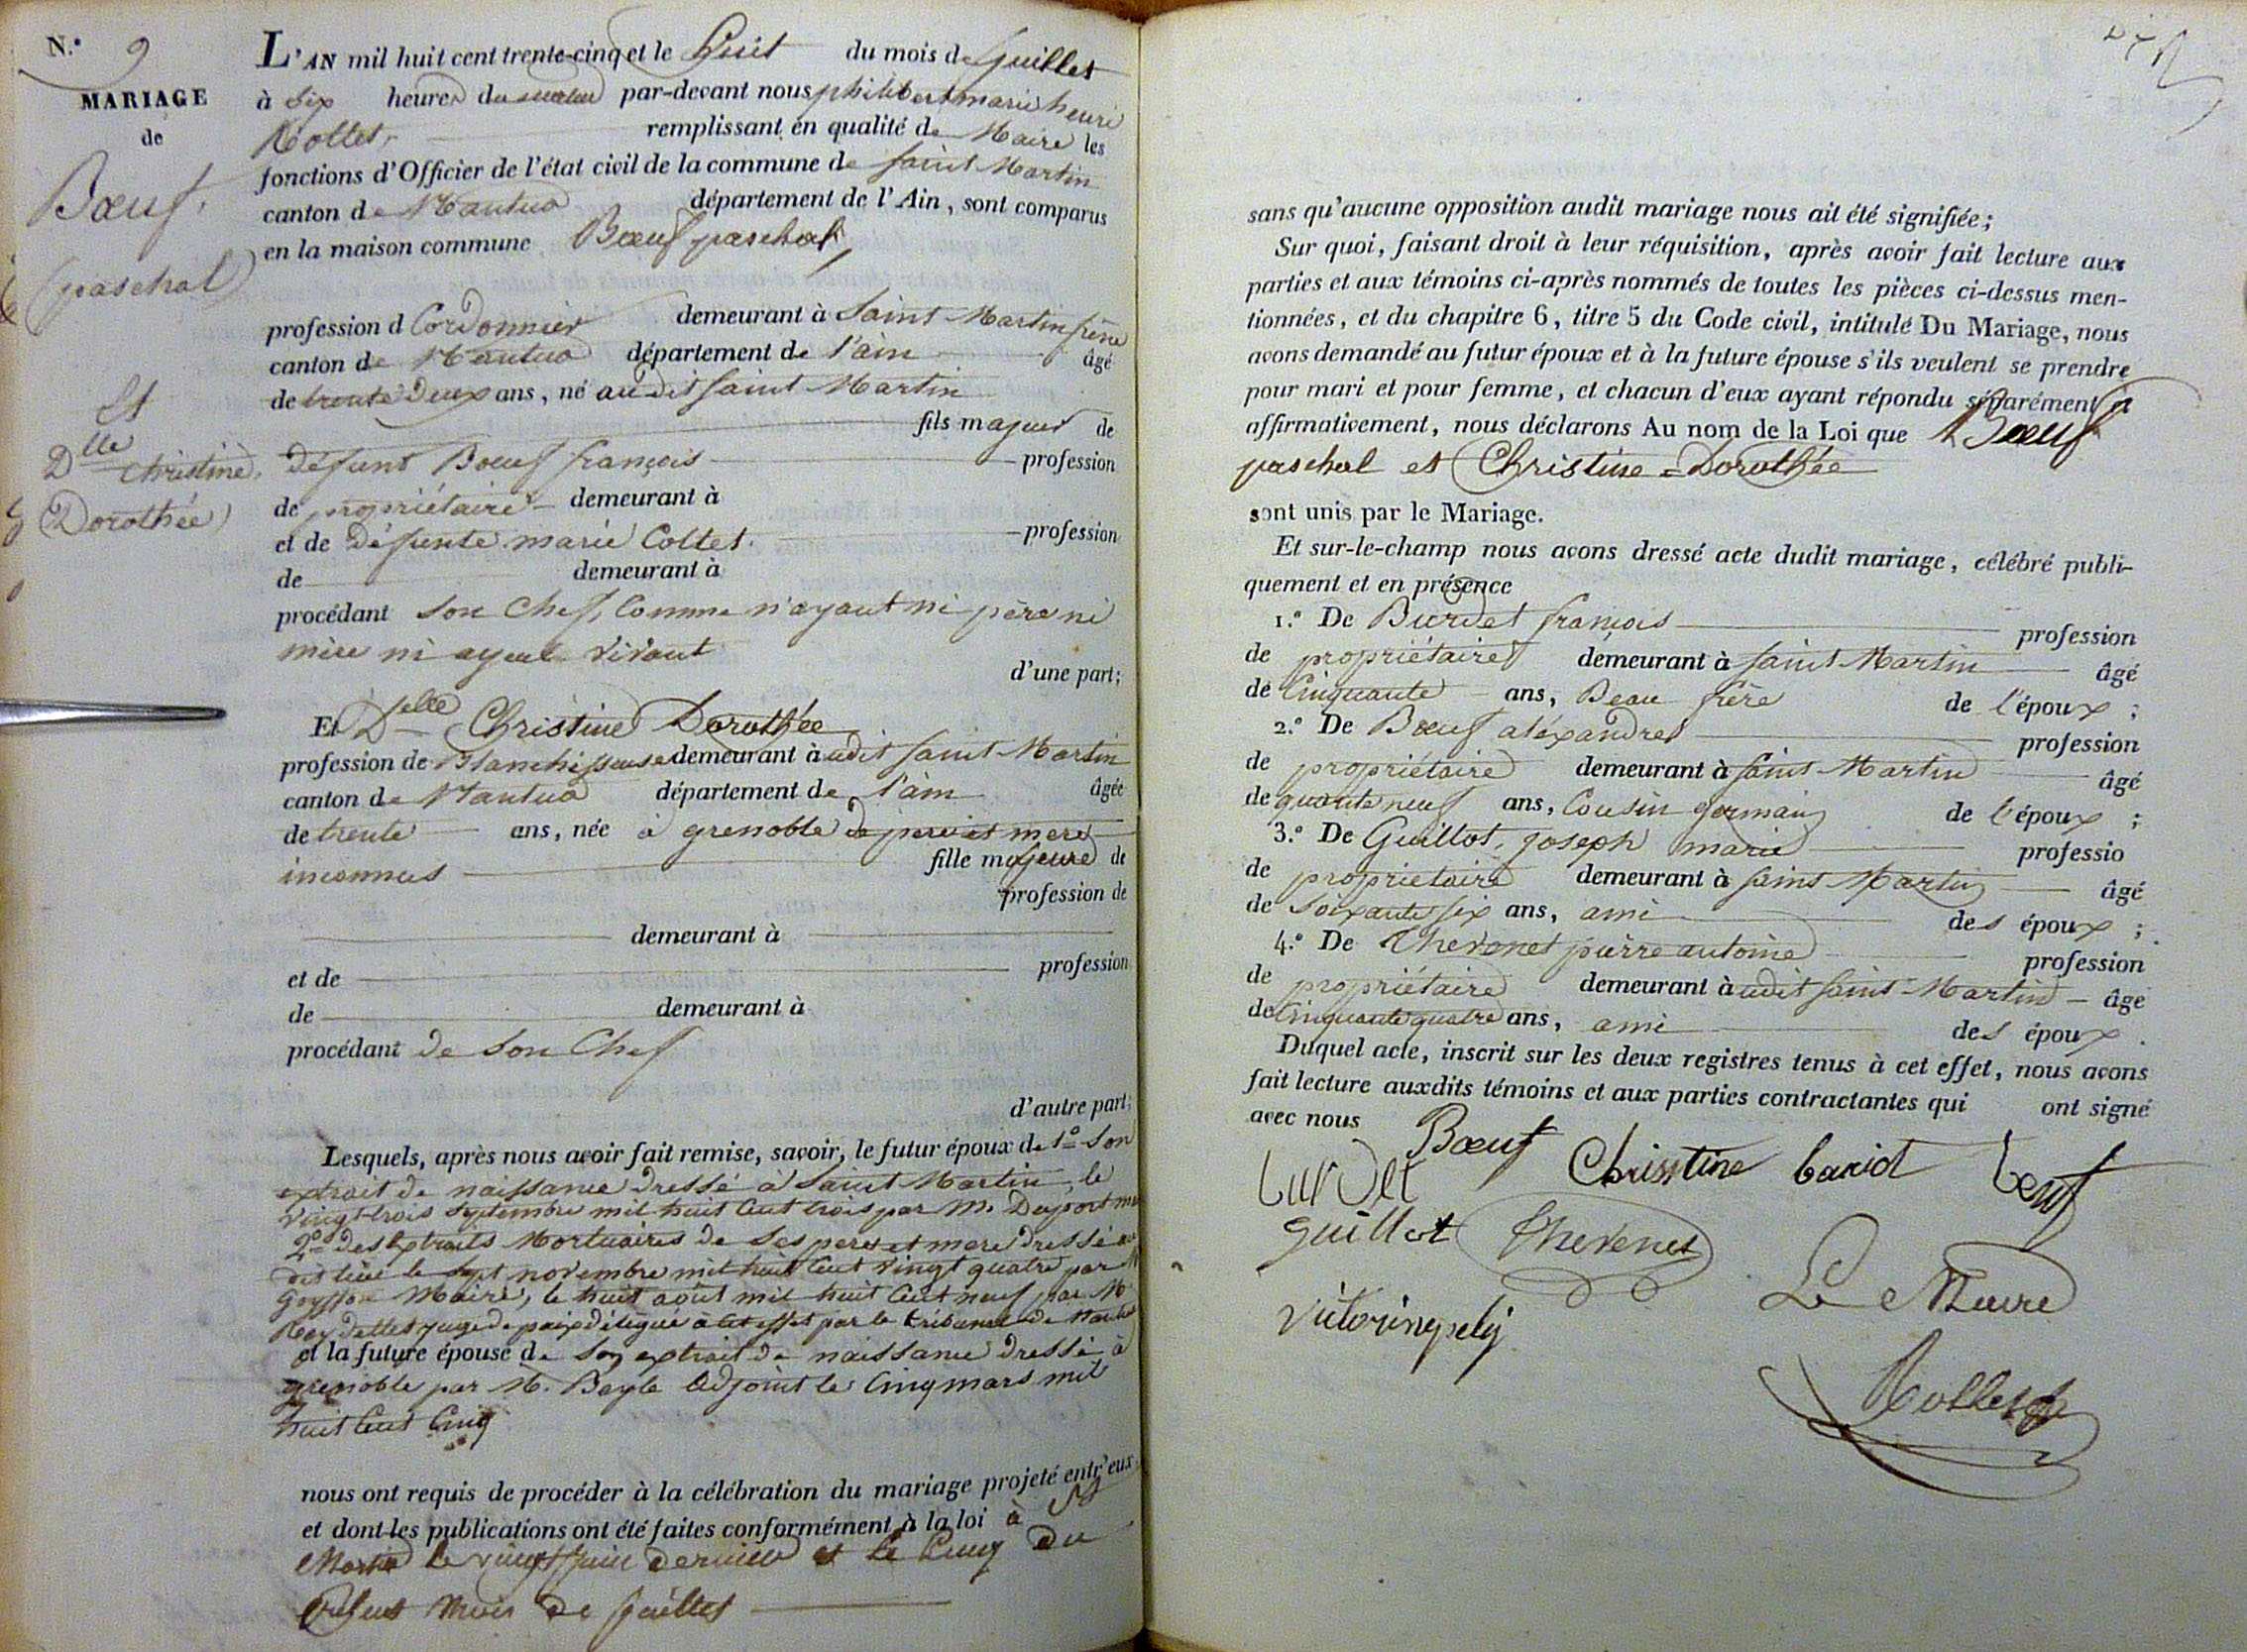 N.º 9
MARIAGE
de
Bœuf,
paschal
Et
Dlle Christine
Dorothée
L'AN mil huit cent trente-cinq et le huit du mois de Juillet
à Six heures du par-devant nous philibert marie henri
Rollet, remplissant en qualité de Maire les
fonctions d'Officier de l'état civil de la commune de Saint Martin
canton de Nantua département de l'Ain, sont comparus
en la maison commune Bœuf paschal,
profession d Cordonnier demeurant à Saint Martin frêne
canton de Nantua département de l'ain âgé
de trente deux ans, né audit Saint Martin
fils majeur de
défunt Bœuf françois profession
de propriétaire demeurant à
et de défunte marie Collet. profession
de demeurant à
procédant son Chef, Comme n'ayant ni père ni
mère ni ayeul vivant
d'une part;
Et Delle Christine Dorothée
profession de Blanchisseuse demeurant audit Saint Martin
canton de Nantua département de l'ain âgée
de trente ans, née à grenoble de père et mere
inconnus fille majeure de
profession de
demeurant à
et de profession
de demeurant à
procédant de Son Chef
d'autre part;
Lesquels, après nous avoir fait remise, savoir, le futur époux de 1º Son
extrait de naissance dressé à Saint Martin, le
vingt-trois Septembre mil huit Cent trois par M. Duport
2º des Extraits Mortuaires de Ses pere et mere dressé au
dit lieu le Sept novembre mil huit Cent vingt quatre par M
Maire, le huit août mil huit Cent neuf par M
Reydellet juge de paix délégué à Cet effet par le tribunal de Nantua
et la future épouse de Son extrait de naissance dressé à
grenoble par M. Bayle Adjoint le Cinq mars mil
huit Cent Cinq
nous ont requis de procéder à la célébration du mariage projeté entr'eux,
et dont les publications ont été faites conformément à la loi à St
Martin le vingt juin dernier et le Cinq du
mois de juillet
sans qu'aucune opposition audit mariage nous ait été signifiée;
Sur quoi, faisant droit à leur réquisition, après avoir fait lecture aux
parties et aux témoins ci-après nommés de toutes les pièces ci-dessus men-
tionnées, et du chapitre 6, titre 5 du Code civil, intitulé Du Mariage, nous
avons demandé au futur époux et à la future épouse s'ils veulent se prendre
pour mari et pour femme, et chacun d'eux ayant répondu séparément et
affirmativement, nous déclarons Au nom de la Loi que Bœuf
paschal et Christine Dorothée
sont unis par le Mariage.
Et sur-le-champ nous avons dressé acte dudit mariage, célébré publi-
quement et en présence
1.º De Burdet françois profession
de propriétaire demeurant à Saint Martin âgé
de Cinquante ans, Beau frère de l'époux ;
2.º De Bœuf aléxandre profession
de propriétaire demeurant à Saint Martin âgé
de quarante neuf ans, Cousin germain de l'époux ;
3.º De Guillot, joseph marie professio
de propriétaire demeurant à Saint Martin âgé
de Soixante six ans, ami des époux ;
4.º De Thevenet pierre antoine profession
de propriétaire demeurant audit Saint Martin âgé
de Cinquante quatre ans, ami des époux.
Duquel acte, inscrit sur les deux registres tenus à cet effet, nous avons
fait lecture auxdits témoins et aux parties contractantes qui ont signé
avec nous Bœuf
burdet Chrisstine bariot beuf
guillot Thevenet
Le Maire
Rollet